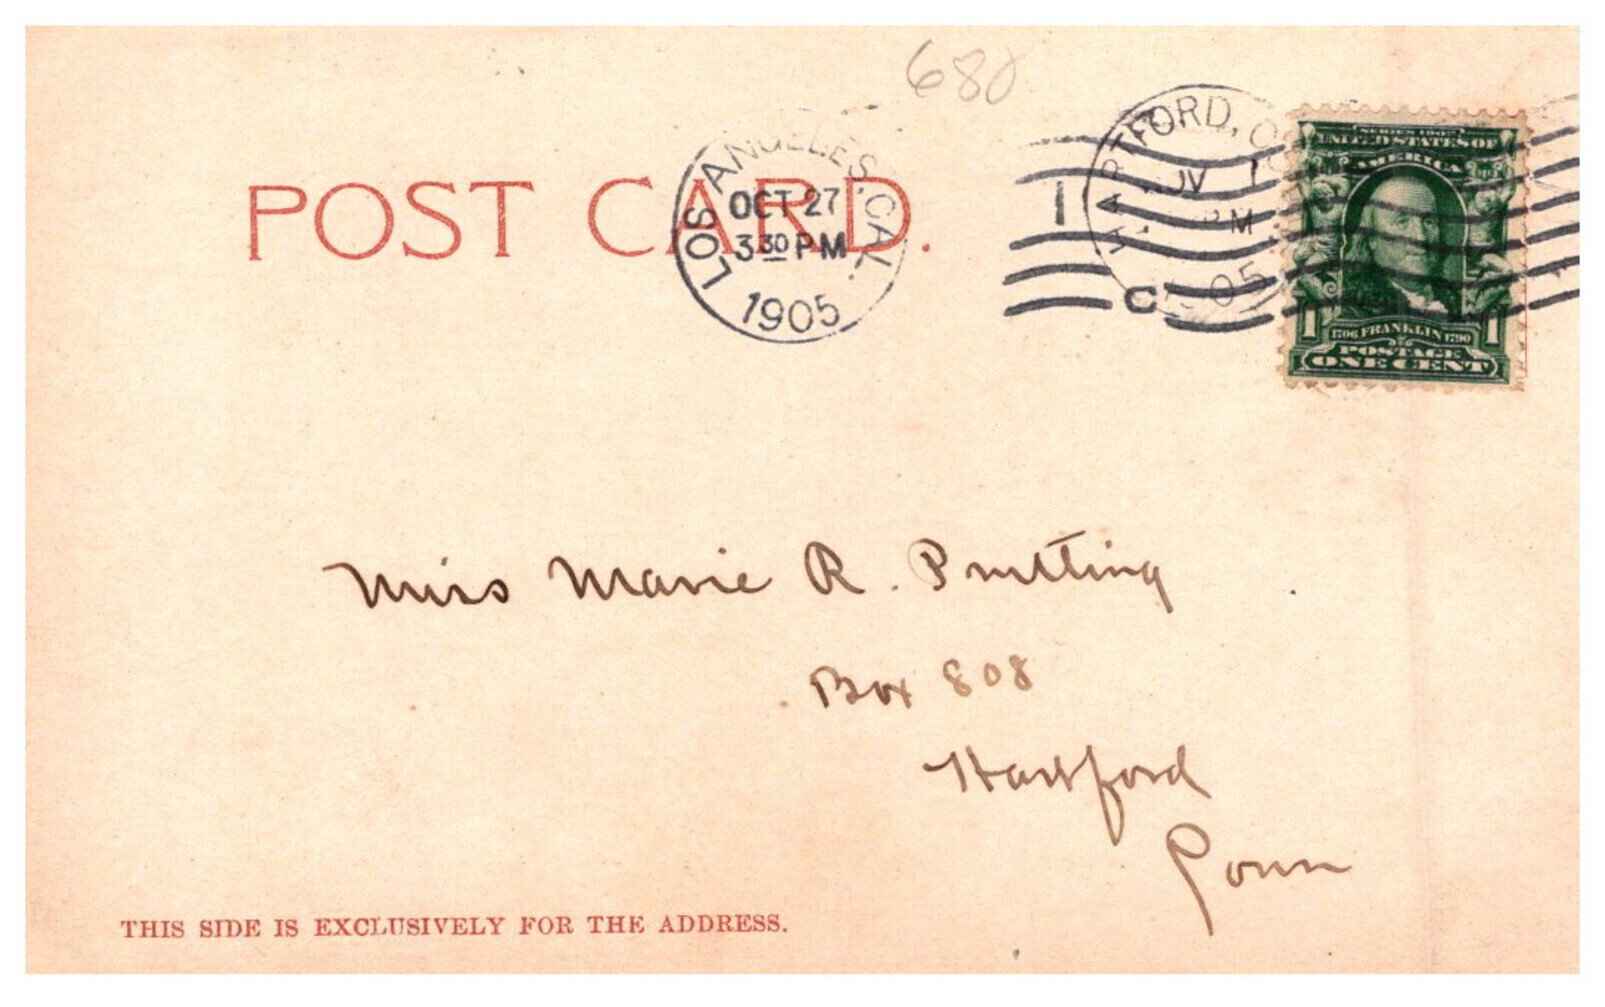 680
POST CARD.
LOS ANGELES, CAL.
OCT 27
3 30 PM
1905
1
C
HARTFORD,
PM
05
SERIES 1902
UNITED STATES OF
AMERICA
1706 FRANKLIN 1790
1 1
POSTAGE
ONE CENT
Miss Marie R. Prutting
Box 808
Hartford
Conn
THIS SIDE IS EXCLUSIVELY FOR THE ADDRESS.